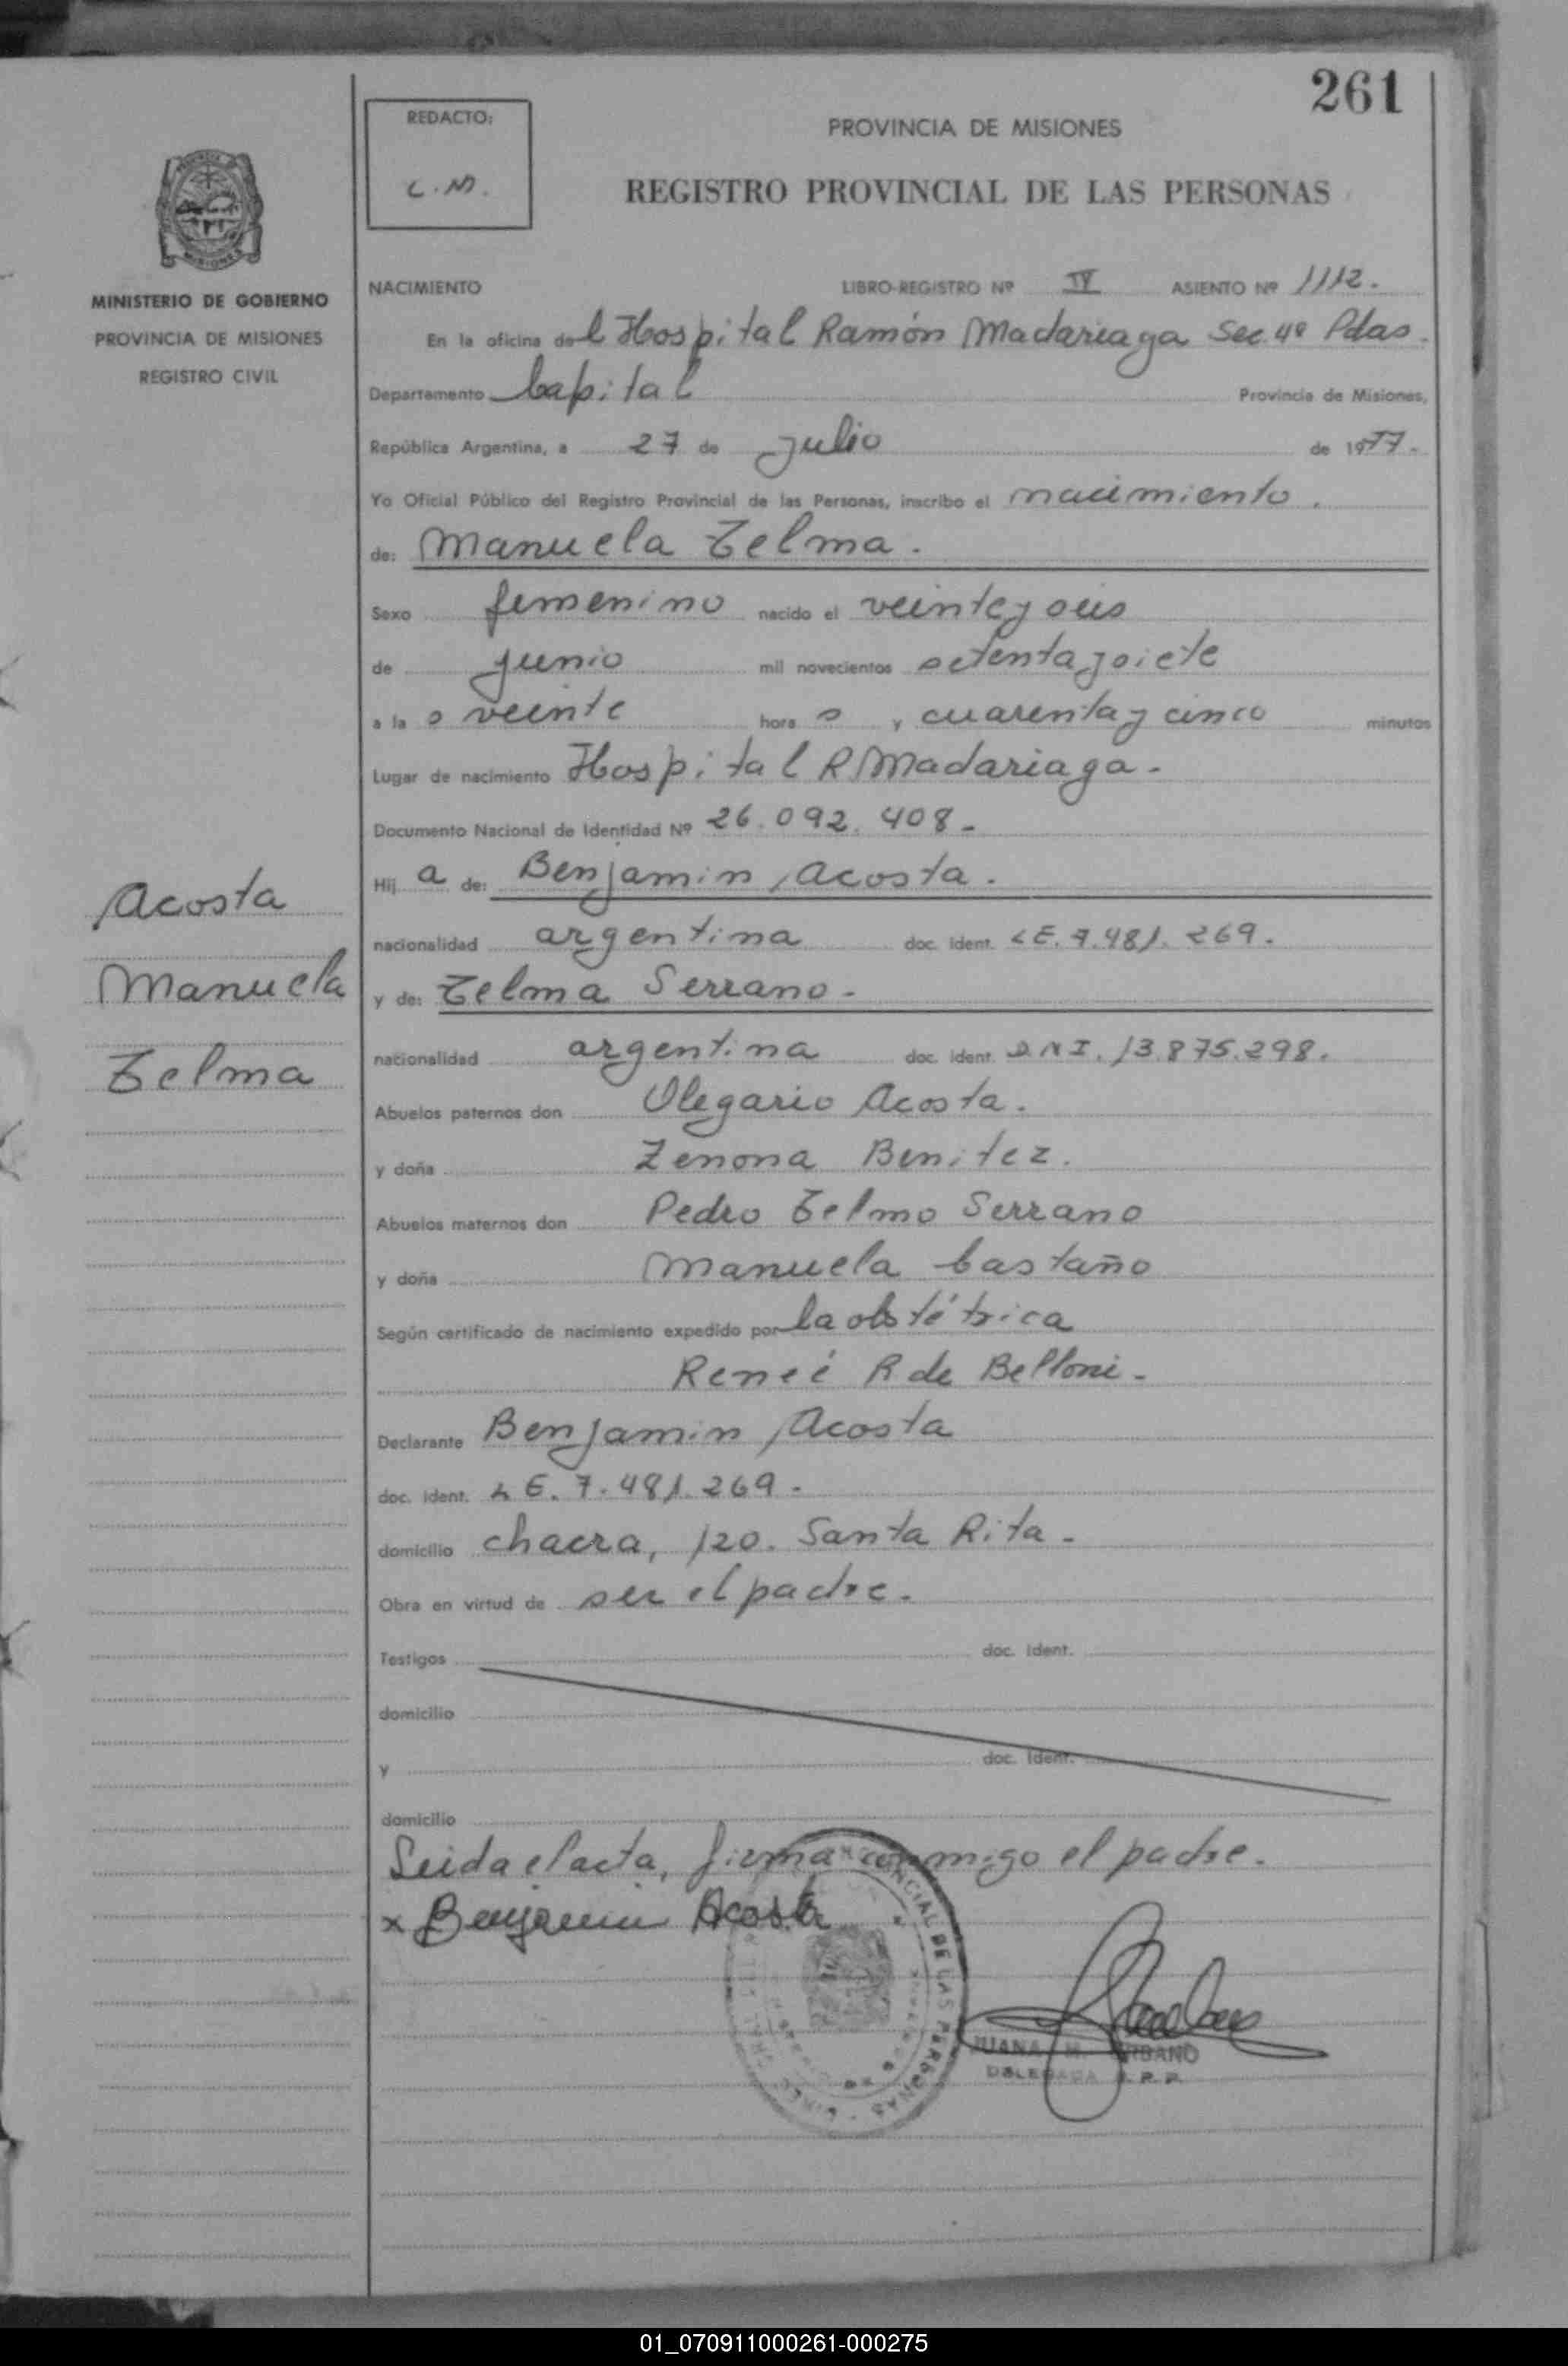 261
REDACTO:
C.M.
PROVINCIA DE MISIONES
REGISTRO PROVINCIAL DE LAS PERSONAS
MINISTERIO DE GOBIERNO
PROVINCIA DE MISIONES
REGISTRO CIVIL
NACIMIENTO LIBRO-REGISTRO Nº IV ASIENTO Nº 1112.
En la oficina del Hospital Ramón Madariaga Sec. 4ª Pdas.
Departamento Capital Provincia de Misiones,
República Argentina, a 27 de Julio de 1977.
Yo Oficial Público del Registro Provincial de las Personas, inscribo el nacimiento.
de: Manuela Telma.
Sexo femenino nacido el veinteyseis
de junio mil novecientos setentaysiete
a la s veinte hora s y cuarentaycinco minutos
Lugar de nacimiento Hospital R Madariaga.
Documento Nacional de Identidad Nº 26.092.408-
Hij a de: Benjamin Acosta.
nacionalidad argentina doc. ident. LE. 7.481.269.
y de: Telma Serrano-
nacionalidad argentina doc. ident. D.N.I. 13.875.298.
Abuelos paternos don Olegario Acosta.
y doña Zenona Benitez.
Abuelos maternos don Pedro Telmo Serrano
y doña Manuela Castaño
Según certificado de nacimiento expedido por la obstétrica
Reneé R de Belloni-
Declarante Benjamin Acosta
doc. ident. LE. 7.481.269-
domicilio chacra, 120. Santa Rita-
Obra en virtud de ser el padre.
Testigos doc. ident.
domicilio
y doc. ident.
domicilio
Leida el acta, firma conmigo el padre.
x Benjamin Acosta
JUANA M. URBANO
DELEGADA R.P.P.
Acosta
Manuela
Telma
01_070911000261-000275